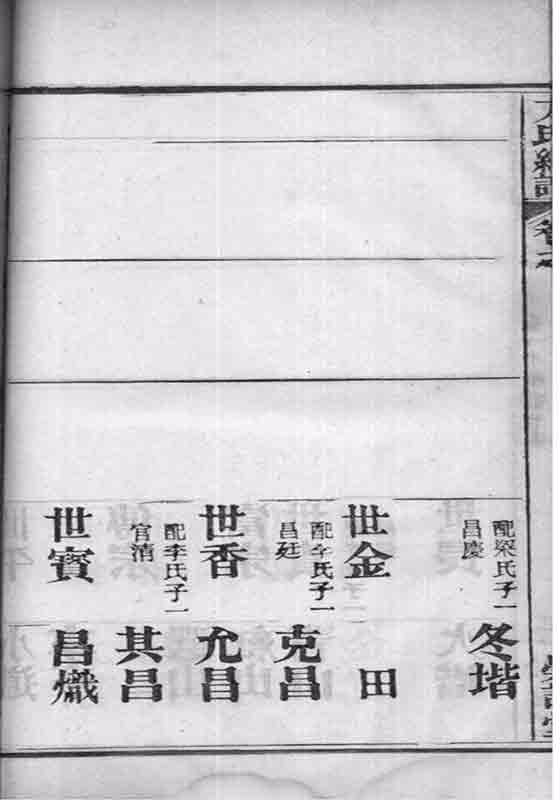 配梁氏子一
昌慶
世金
配李氏子一
昌廷
世香
配李氏子一
官清
世寶
冬堦
田
克昌
允昌
其昌
昌熾